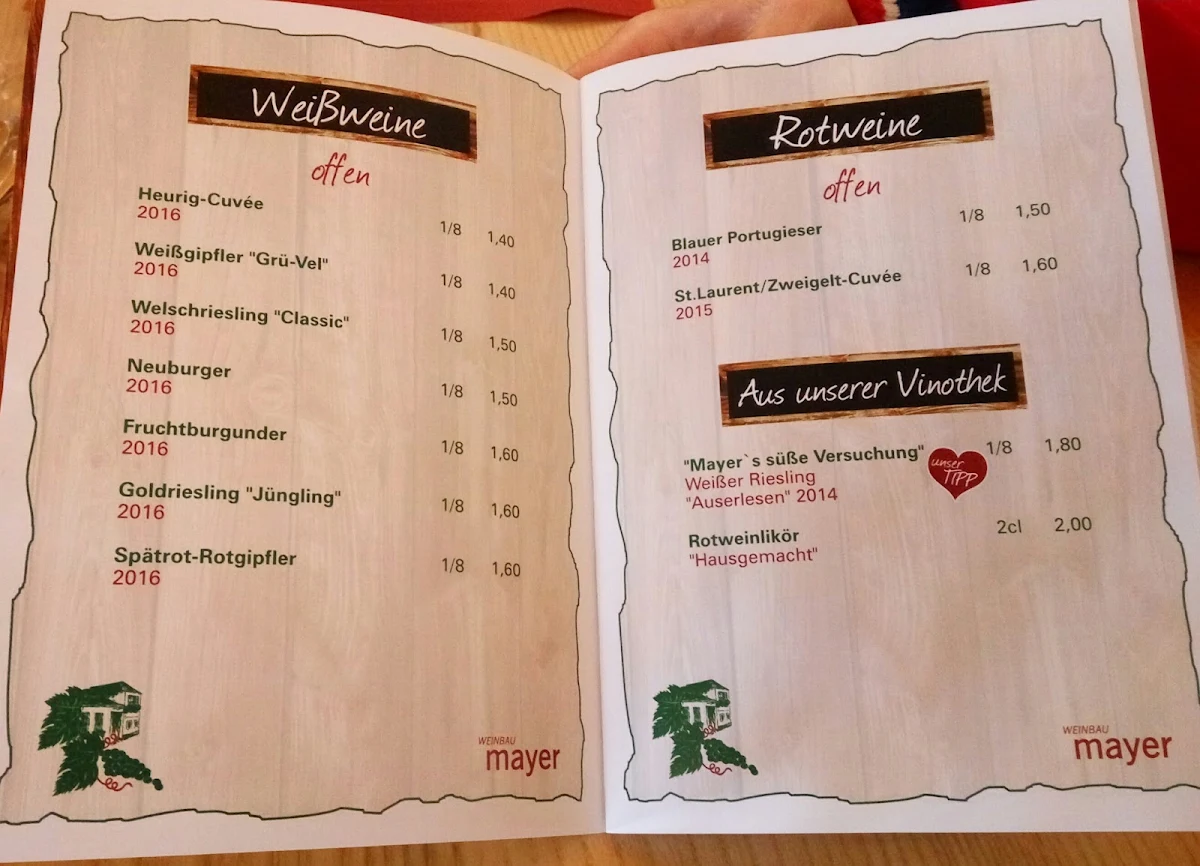 Weißweine
offen
Heurig-Cuvée
2016
1/8 1,40
Weißgipfler "Grü-Vel"
2016
1/8 1,40
Welschriesling "Classic"
2016
1/8 1,50
Neuburger
2016
1/8 1,50
Fruchtburgunder
2016
1/8 1,60
Goldriesling "Jüngling"
2016
1/8 1,60
Spätrot-Rotgipfler
2016
1/8 1,60
WEINBAU
mayer
Rotweine
offen
Blauer Portugieser 1/8 1,50
2014
St.Laurent/Zweigelt-Cuvée 1/8 1,60
2015
Aus unserer Vinothek
"Mayer`s süße Versuchung" 1/8 1,80
unser
TIPP
Weißer Riesling
"Auserlesen" 2014
Rotweinlikör 2cl 2,00
"Hausgemacht"
WEINBAU
mayer